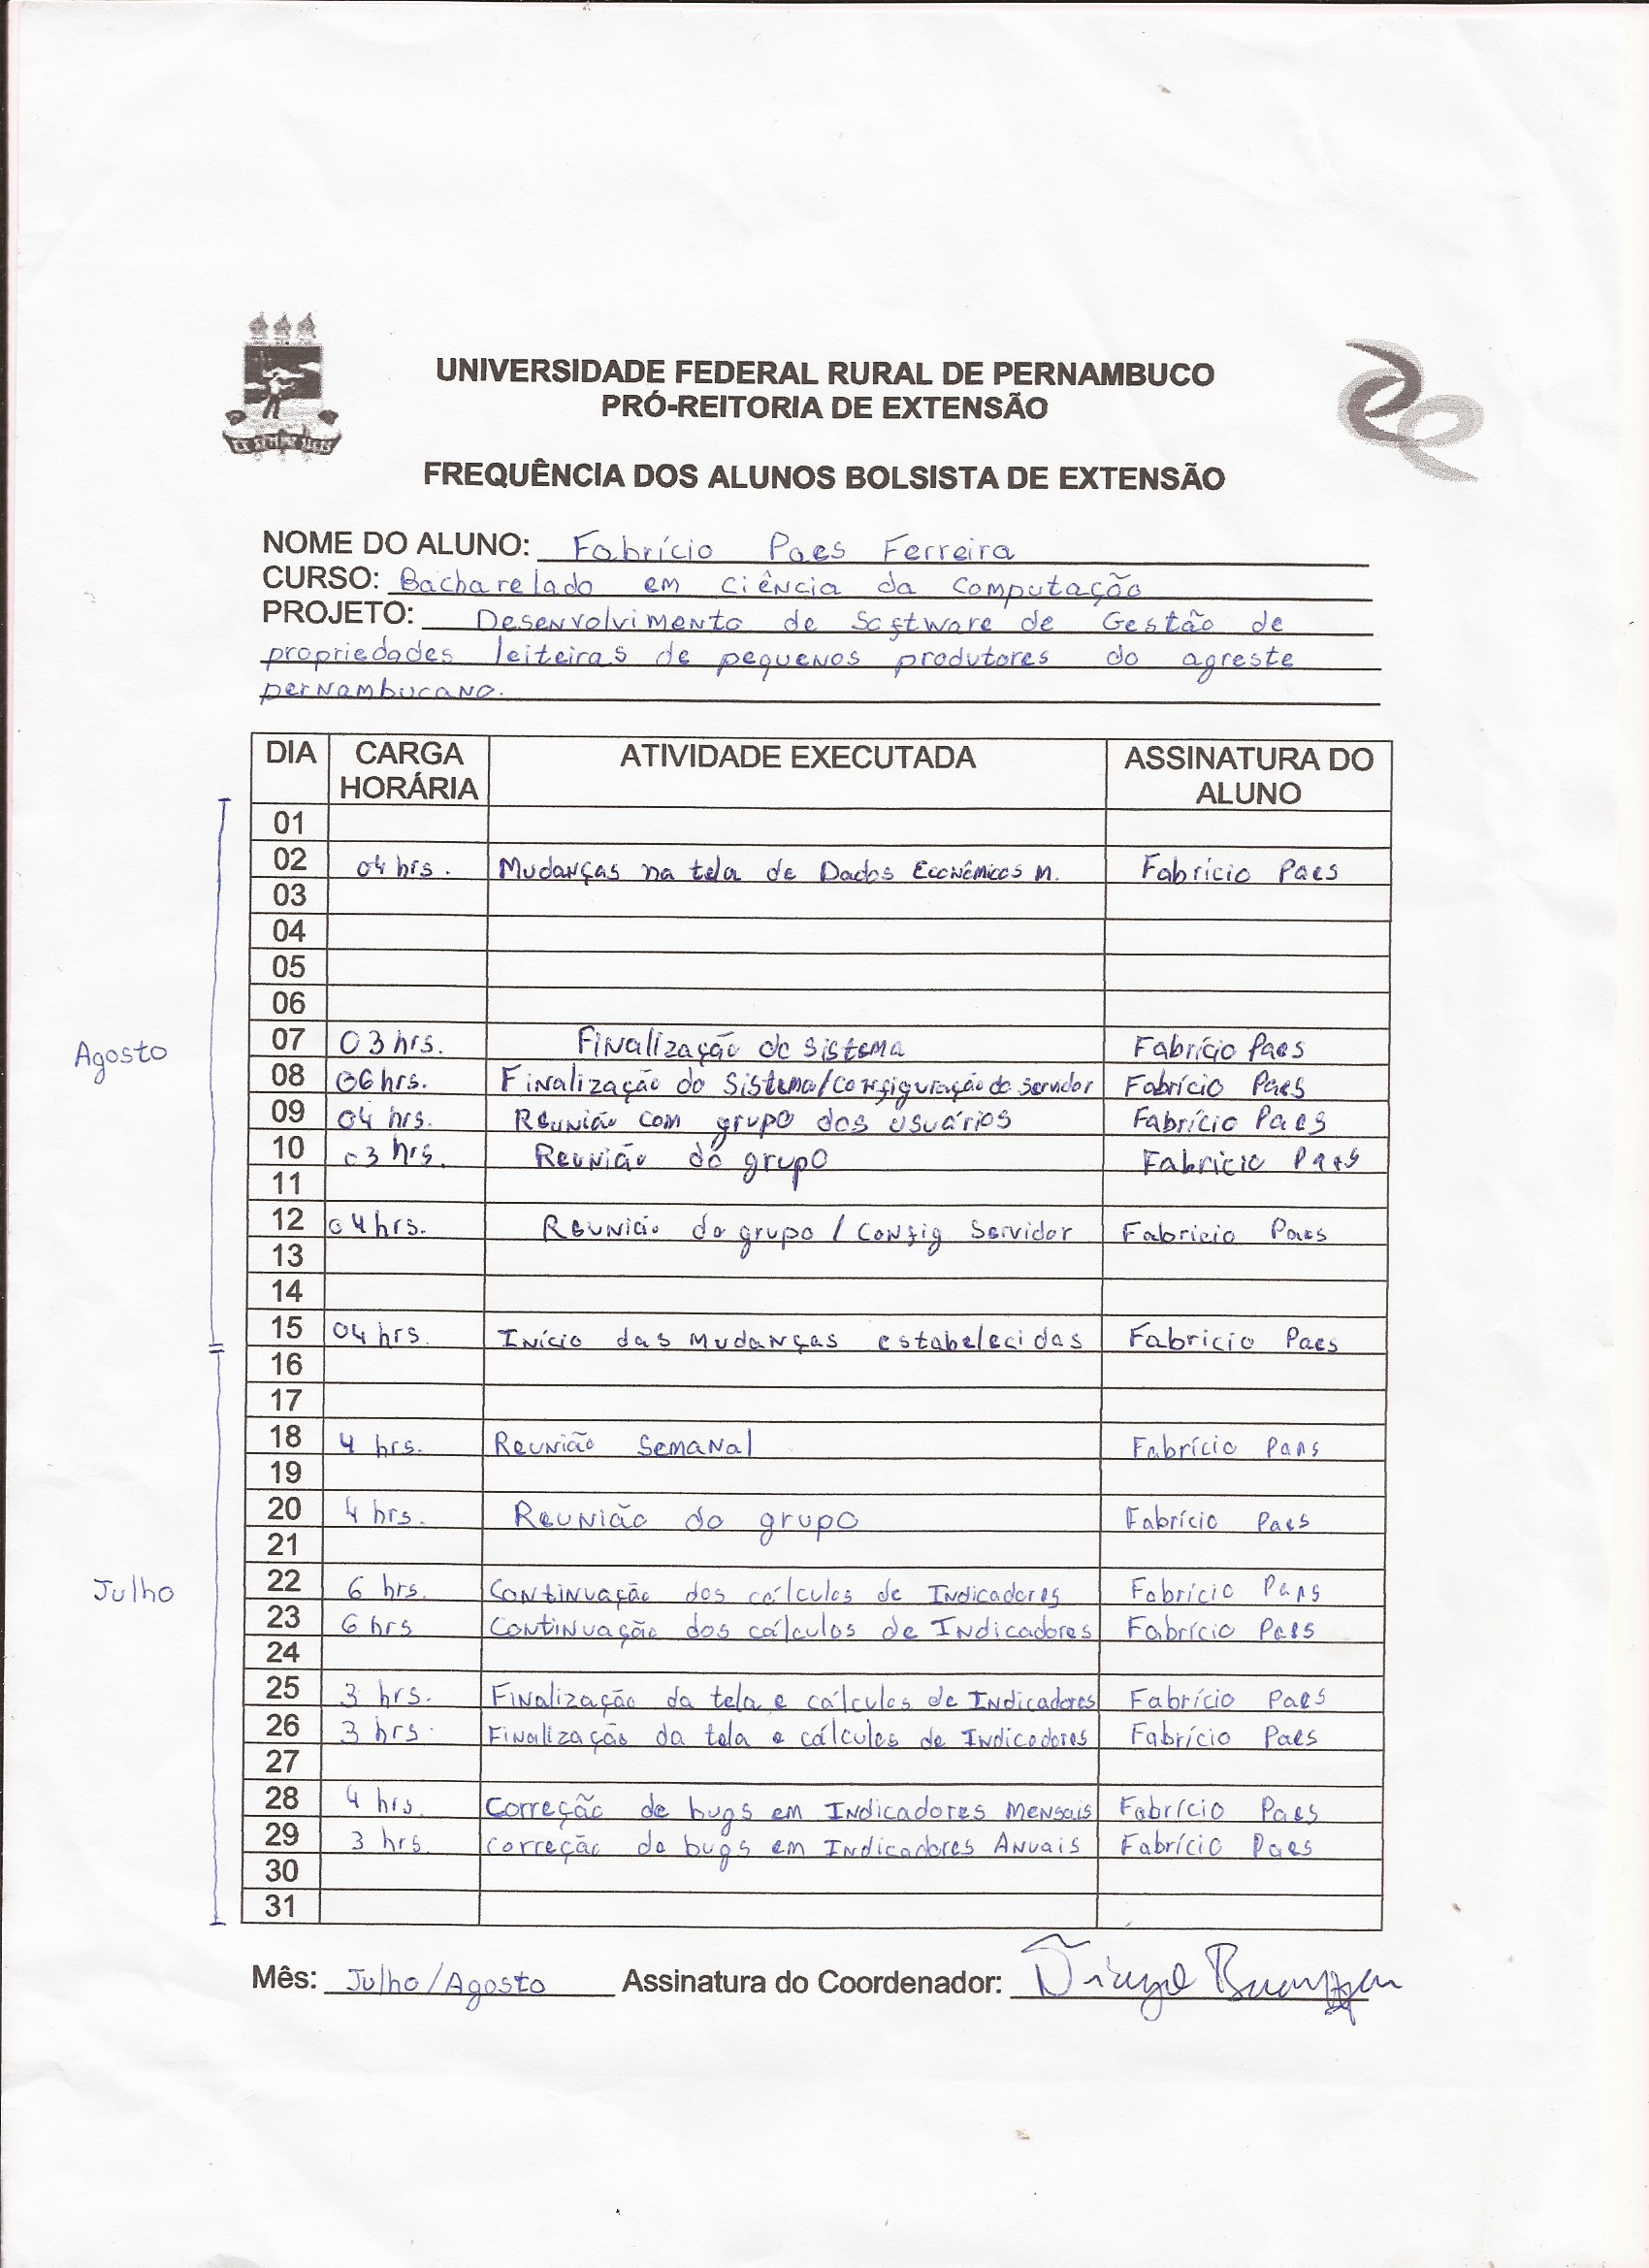 UNIVERSIDADE FEDERAL RURAL DE PERNAMBUCO
PRÓ-REITORIA DE EXTENSÃO
FREQUÊNCIA DOS ALUNOS BOLSISTA DE EXTENSÃO
NOME DO ALUNO: Fabrício Paes Ferreira
CURSO: Bacharelado em Ciência da Computação
PROJETO: Desenvolvimento de Software de Gestão de
propriedades leiteiras de pequenos produtores do agreste
pernambucano.
DIA CARGA HORÁRIA ATIVIDADE EXECUTADA ASSINATURA DO ALUNO
01
02 04 hrs. Mudanças na tela de Dados Econômicos M. Fabrício Paes
03
04
05
06
Agosto
07 03 hrs. Finalização do Sistema Fabrício Paes
08 06 hrs. Finalização do Sistema/Configuração do servidor Fabrício Paes
09 04 hrs. Reunião com grupo dos usuários Fabrício Paes
10 03 hrs. Reunião do grupo Fabrício Paes
11
12 04 hrs. Reunião do grupo / Config Servidor Fabrício Paes
13
14
15 04 hrs. Início das mudanças estabelecidas Fabrício Paes
16
17
18 4 hrs. Reunião Semanal Fabrício Paes
19
20 4 hrs. Reunião do grupo Fabrício Paes
21
Julho
22 6 hrs. Continuação dos cálculos de Indicadores Fabrício Paes
23 6 hrs Continuação dos cálculos de Indicadores Fabrício Paes
24
25 3 hrs. Finalização da tela e cálculos de Indicadores Fabrício Paes
26 3 hrs. Finalização da tela e cálculos de Indicadores Fabrício Paes
27
28 4 hrs. Correção de bugs em Indicadores Mensais Fabrício Paes
29 3 hrs. Correção de bugs em Indicadores Anuais Fabrício Paes
30
31
Mês: Julho/Agosto Assinatura do Coordenador: